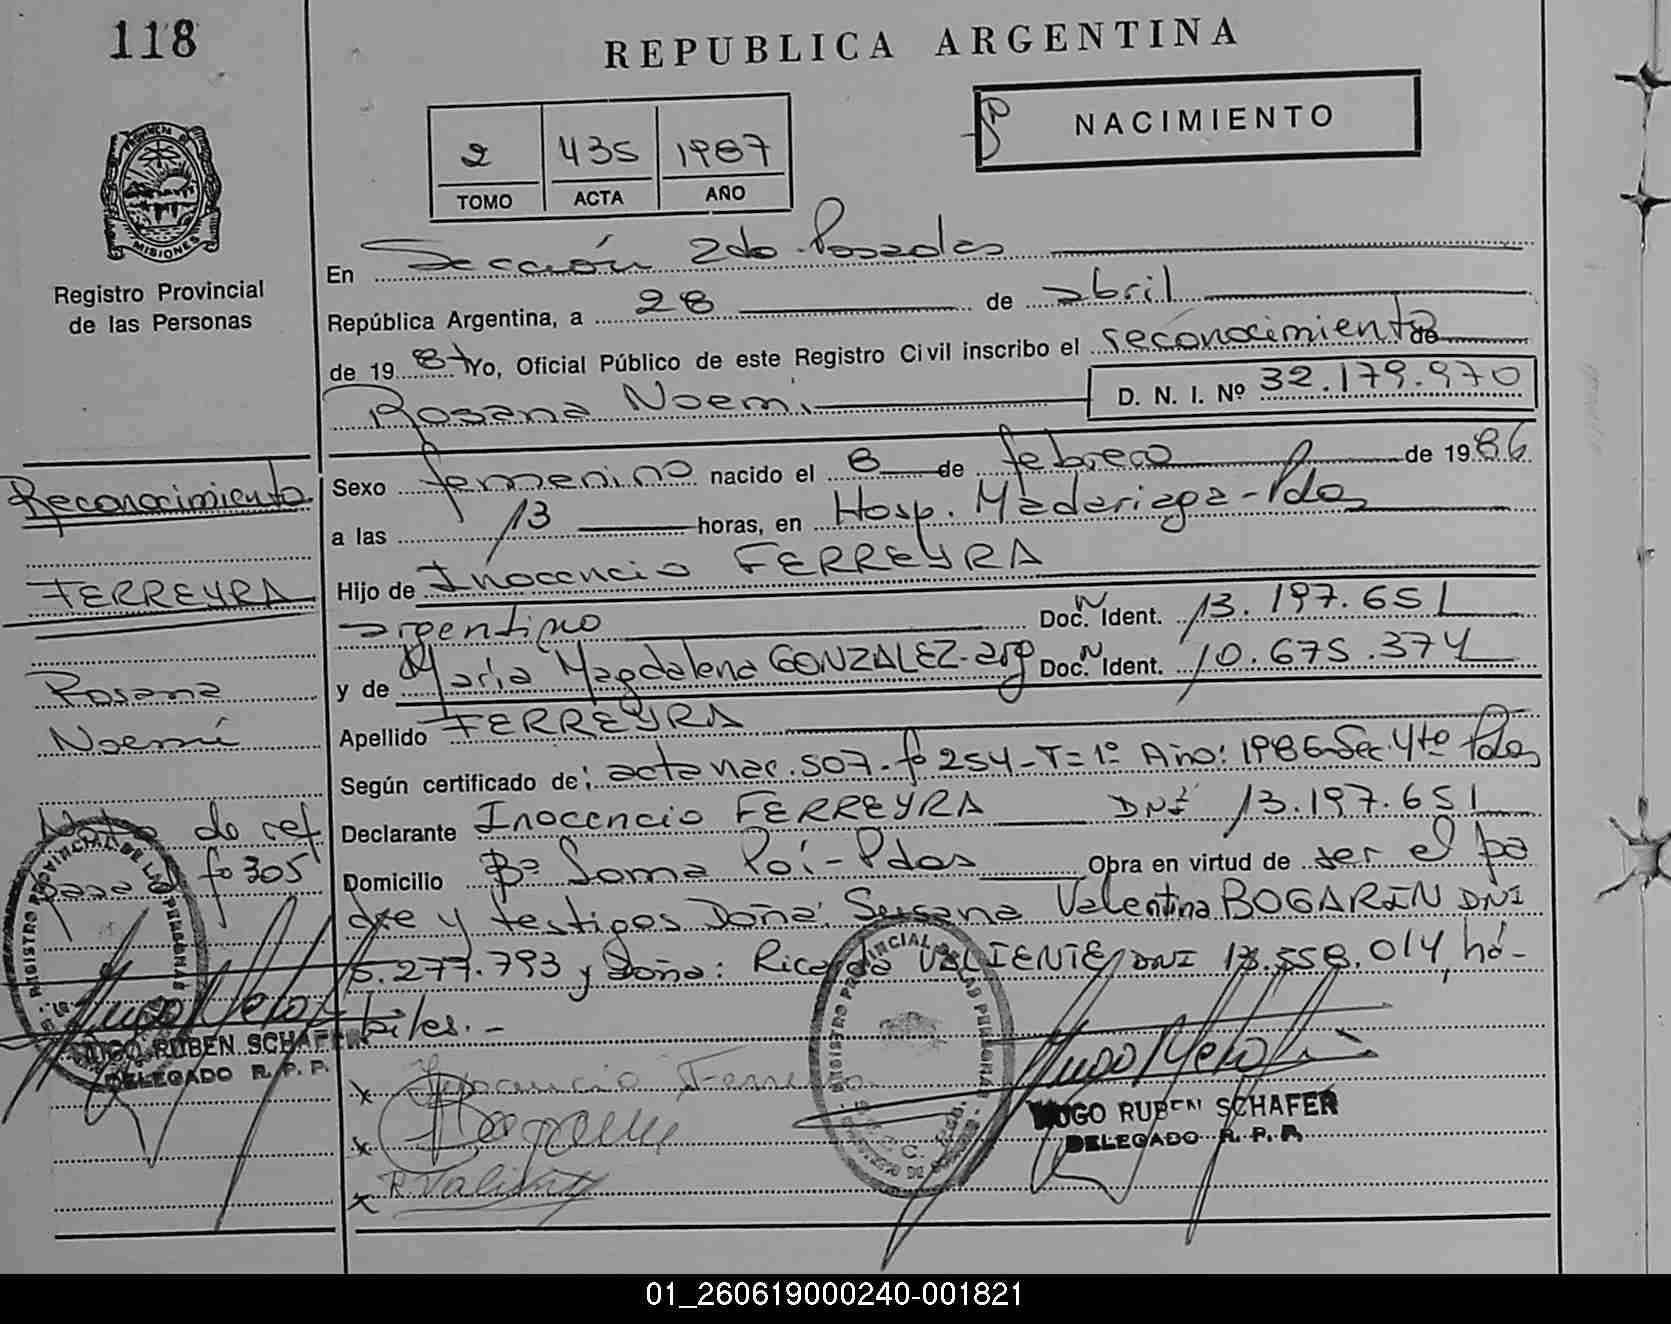 118
REPUBLICA ARGENTINA
NACIMIENTO
2 435 1987
TOMO ACTA AÑO
PROVINCIA DE MISIONES
Registro Provincial
de las Personas
En Sección 2do. Posadas
República Argentina, a 28 de abril
de 1987 Yo, Oficial Público de este Registro Civil inscribo el reconocimiento de
Rosana Noemi D. N. I. Nº 32.179.970
Sexo femenino nacido el 8 de febrero de 1986
a las 13 horas, en Hosp. Madariaga-Pdas
Hijo de Inocencio FERREYRA
argentino Doc. N Ident. 13.197.651
y de María Magdalena GONZALEZ-arg Doc. N Ident. 10.675.374
Apellido FERREYRA
Según certificado de: acta nac. 507-fº 254-T=1º Año: 1986-Sec. 4to Pdas
Declarante Inocencio FERREYRA DNI 13.197.651
Domicilio Bº Loma Poí-Pdas Obra en virtud de ser el pa
dre y testigos Doña: Susana Valentina BOGARIN DNI
5.277.793 y Doña: Ricarda VALIENTE DNI 13.558.014, há-
biles.-
Reconocimiento
FERREYRA
Rosana
Noemí
Nota de ref
pasa al fº 305
REGISTRO PROVINCIAL DE LAS PERSONAS
HUGO RUBEN SCHAFER
DELEGADO R. P. P.
x Inocencio Ferreyra
x
x R Valiente
REGISTRO PROVINCIAL DE LAS PERSONAS
HUGO RUBEN SCHAFER
DELEGADO R. P. P.
01_260619000240-001821